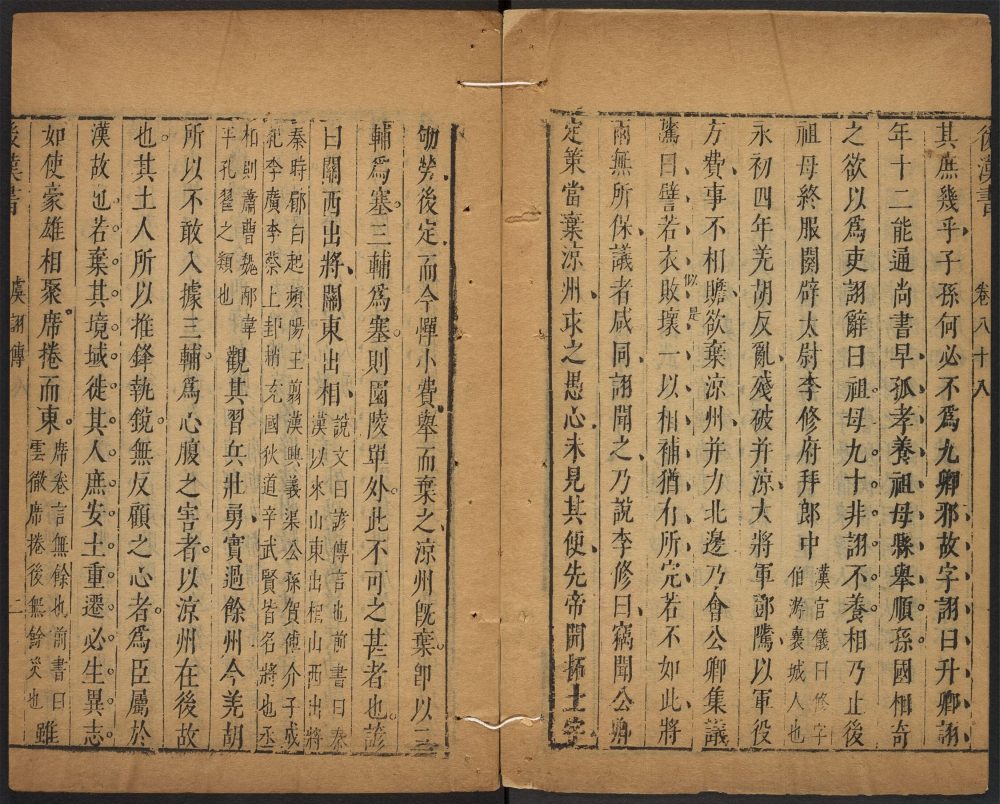 後漢書 卷八十八
其庶幾乎子孫何必不爲九卿邪故字詡曰升卿詡
年十二能通尚書早孤孝養祖母縣舉順孫國相奇
之欲以爲吏詡辭曰祖母九十非詡不養相乃止後
祖母終服闋辟太尉李修府拜郎中
漢官儀曰修字
伯游襄城人也
永初四年羌胡反亂殘破并涼大將軍鄧隲以軍役
方費事不相贍欲棄涼州并力北邊乃會公卿集議
似是
隲曰譬若衣敗壞一以相補猶有所完若不如此將
兩無所保議者咸同詡聞之乃說李修曰竊聞公卿
定策當棄涼州求之愚心未見其便先帝開拓土宇
劬勞後定而今憚小費舉而棄之涼州旣棄卽以三
輔爲塞三輔爲塞則園陵單外此不可之甚者也諺
曰關西出將關東出相
說文曰諺傳言也前書曰秦
漢以來山東出相山西出將
秦時郿白起頻陽王翦漢興義渠公孫賀傅介子成
紀李廣李蔡上邽趙充國狄道辛武賢皆名將也丞
相則蕭曹魏邴韋
平孔翟之類也
觀其習兵壯勇實過餘州今羌胡
所以不敢入據三輔爲心腹之害者以涼州在後故
也其土人所以推鋒執銳無反顧之心者爲臣屬於
漢故也若棄其境域徙其人庶安土重遷必生異志
如使豪雄相聚席捲而東
席卷言無餘也前書曰
雲徹席捲後無餘災也
雖
後漢書 虞詡傳 二